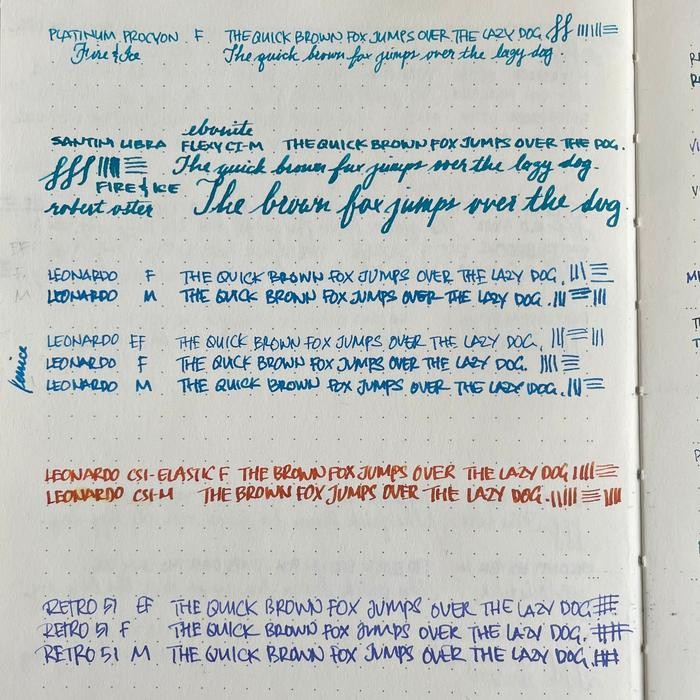 PLATINUM PROCYON F THE QUICK BROWN FOX JUMPS OVER THE LAZY DOG.
Fire & Ice The quick brown fox jumps over the lazy dog.
ebonite
SANTINI LIBRA FLEXY CI-M THE QUICK BROWN FOX JUMPS OVER THE DOG.
The quick brown fox jumps over the lazy dog.
FIRE & ICE
robert oster The brown fox jumps over the dog.
LEONARDO F THE QUICK BROWN FOX JUMPS OVER THE LAZY DOG.
LEONARDO M THE QUICK BROWN FOX JUMPS OVER THE LAZY DOG.
LEONARDO EF THE QUICK BROWN FOX JUMPS OVER THE LAZY DOG.
LEONARDO F THE QUICK BROWN FOX JUMPS OVER THE LAZY DOG.
LEONARDO M THE QUICK BROWN FOX JUMPS OVER THE LAZY DOG.
LEONARDO CSI-ELASTIC F THE BROWN FOX JUMPS OVER THE LAZY DOG
LEONARDO CSI-M THE BROWN FOX JUMPS OVER THE LAZY DOG.
RETRO 51 EF THE QUICK BROWN FOX JUMPS OVER THE LAZY DOG
RETRO 51 F THE QUICK BROWN FOX JUMPS OVER THE LAZY DOG.
RETRO 51 M THE QUICK BROWN FOX JUMPS OVER THE LAZY DOG.